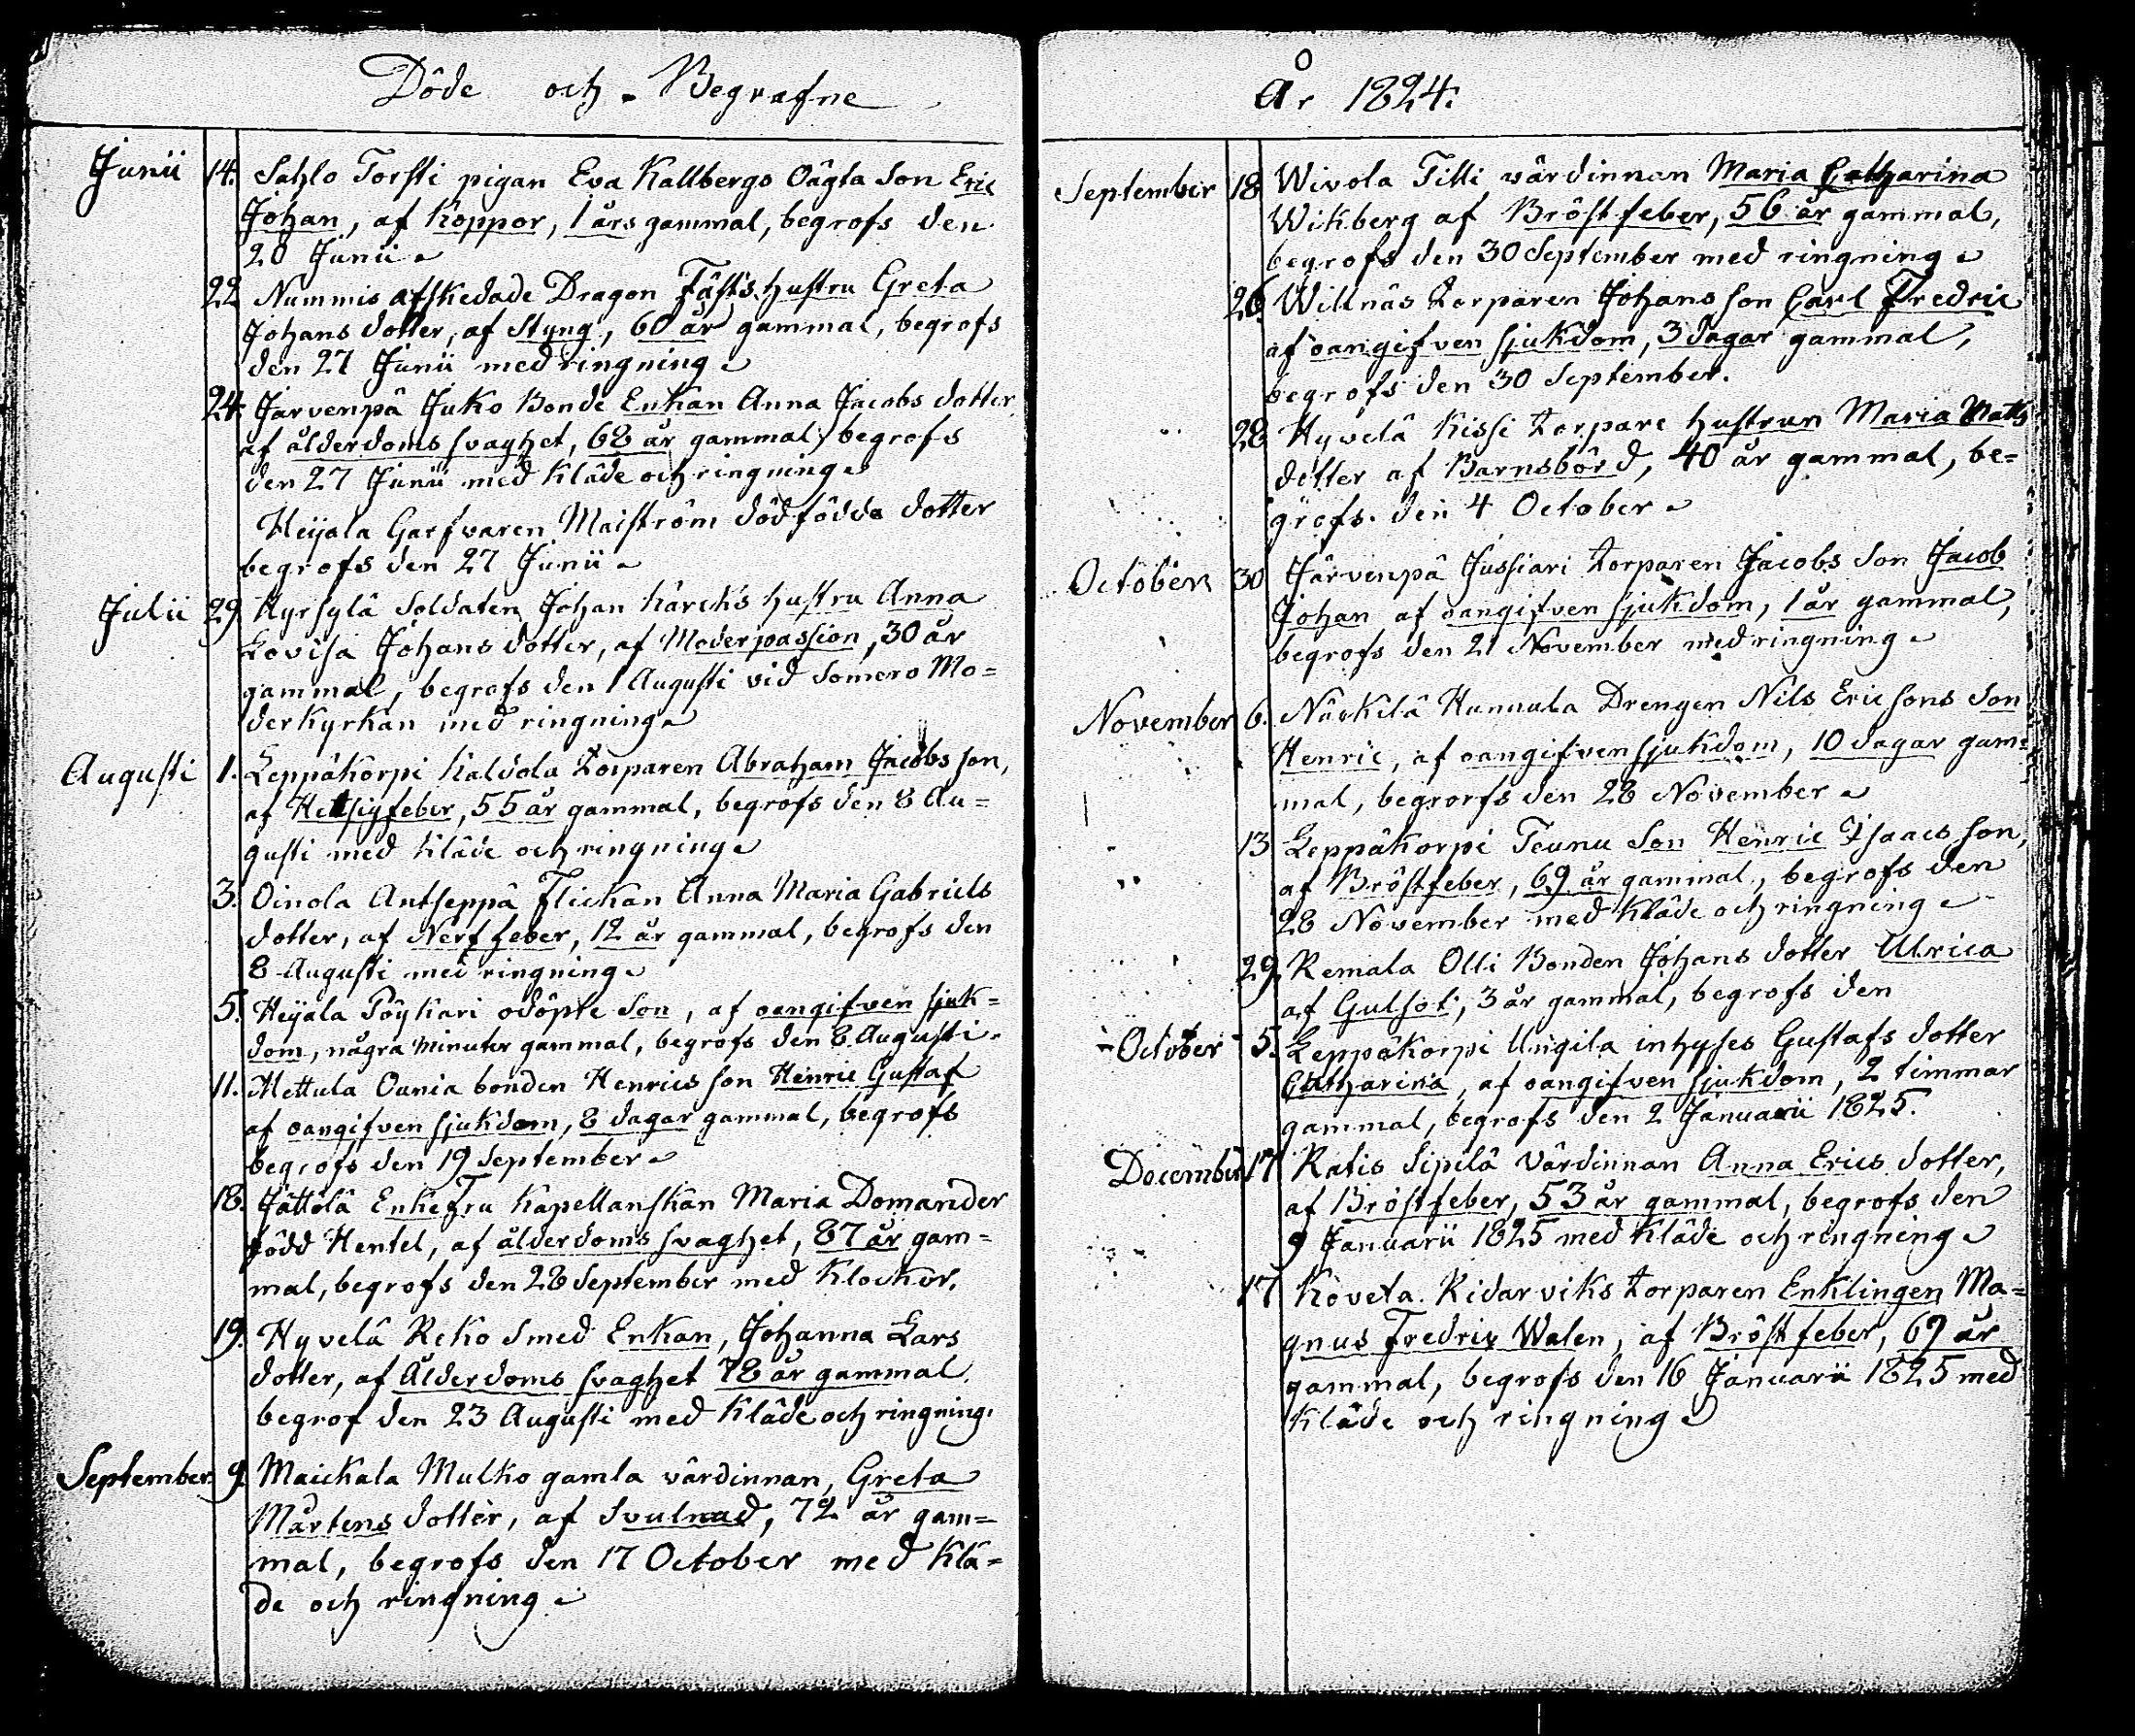 Döde och Begrafne
Junii 14. Sahlo Torsti pigan Eva Kallbergs Oägta Son Eric
Johan, af Koppor, 1 års gammal, begrofs den
20 Junii
22 Nummis afskedade Dragon Täfts hustru Greta
Johans dotter, af Styng, 60 år gammal, begrofs
den 27 Junii med ringning
24. Jarvenpä Juko Bonde Enkan Anna Jacobs dotter
af ålderdoms svaghet, 68 år gammal, begrofs
den 27 Junii med Kläde och ringning
Heijala Garfvaren Maiström dödfödda dotter
begrofs den 27 Junii
Julii 29 Hyrsylä Soldaten Johan Kärcks hustru Anna
Lovisa Johans dotter, af Moderpassion, 30 år
gammal, begrofs den 1 Augusti vid Somero Mo=
derkyrkan med ringning
Augusti 1. Leppäkorpi Kaldola torparen Abraham Jacobs son,
af Hetsigfeber, 55 år gammal, begrofs den 8 Au=
gusti med Kläde och ringning
3. Oinola Antseppä Flickan Anna Maria Gabriels
dotter, af Nerffeber, 12 år gammal, begrofs den
8 Augusti med ringning
5. Heijala Pöykäri odöpte Son, af oangifven sjuk=
dom, några minuter gammal, begrofs den 8 Augusti
11. Mettula Ounia bonden Henrics son Henric Gustaf
af oangifven sjukdom, 8 dagar gammal, begrofs
begrofs den 19 September
18. Jättölä Enkefru Kapellanskan Maria Domander
född Hentel, af ålderdoms svaghet, 87 år gam=
mal, begrofs den 28 September med Klockor.
19. Hyvelä Reko Smed Enkan, Johanna Lars
dotter, af Ålderdoms svaghet 78 år gammal
begrof den 23 Augusti med Kläde och ringning.
September 9. Maickala Mulko gamla värdinnan, Greta
Mårtens dotter, af Svulnad, 72 år gam=
mal, begrofs den 17 October med Klä=
de och ringning
År 1824.
September 18 Wivola Tilli värdinnan Maria Catharina
Wikberg af Bröstfeber, 56 år gammal,
begrofs den 30 September med ringning
26. Willnäs torparen Johans son Carl Fredric
af oangifven sjukdom, 3 dagar gammal,
begrofs den 30 September.
28 Hyvelä Kissi torpare hustrun Maria Matts
dotter af Barnsbörd, 40 år gammal, be=
grofs den 4 October
October 30 Järvenpä Jussiari torparen Jacobs Son Jacob
Johan af oangifven sjukdom, 1 år gammal,
begrofs den 21 November med ringning
November 6. Närkilä Hannula Drengen Nils Ericsons Son
Henric, af oangifven sjukdom, 10 dagar gam=
mal, begrorfs den 28 November
13 Leppäkorpi Teunu Son Henric Isaacs son,
af Bröstfeber, 69 år gammal, begrofs den
28 November med Kläde och ringning
29. Remala Olli Bonden Johans dotter Ulrica
af Gulsot, 3 år gammal, begrofs den
October 5. Leppäkorpi Ungila inhyses Gustafs dotter
Catharina, af oangifven sjukdom, 2 timmar
gammal, begrofs den 2 Januarii 1825.
December 17 Ratis Sipilä Värdinnan Anna Erics dotter,
af Bröstfeber, 53 år gammal, begrofs den
9 Januarii 1825 med Kläde och ringning
17 Koveta Ridarviks torparen Enklingen Ma=
gnus Fredric Walen, af Bröstfeber, 69 år
gammal, begrofs den 16 Januarii 1825 med
Kläde och ringning